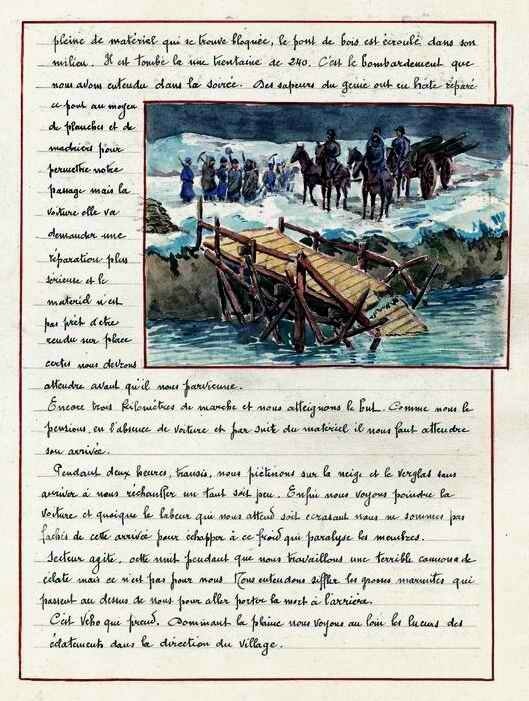 pleine de matériel qui se trouve bloquée, le pont de bois est écroulé dans son
milieu. Il est tombé là une trentaine de 240. C'est le bombardement que
nous avons entendu dans la soirée. Des sapeurs du génie ont en hâte réparé
ce pont au moyen
de planches et de
madriers pour
permettre notre
passage mais la
voiture elle va
demander une
réparation plus
sérieuse et le
matériel n'est
pas prêt d'être
rendu sur place
certes nous devrons
attendre avant qu'il nous parvienne.
Encore trois kilomètres de marche et nous atteignons le but. Comme nous le
pensions, en l'absence de voiture et par suite du matériel il nous faut attendre
son arrivée.
Pendant deux heures, transis, nous piétinons sur la neige et le verglas sans
arriver à nous réchauffer un tant soit peu. Enfin nous voyons poindre la
voiture et quoique le labeur qui nous attend soit écrasant nous ne sommes pas
fachés de cette arrivée pour échapper à ce froid qui paralyse les membres.
Secteur agité, cette nuit pendant que nous travaillons une terrible canonnade
éclate mais ce n'est pas pour nous. Nous entendons siffler les grosses marmites qui
passent au dessus de nous pour aller porter la mort à l'arrière.
C'est Vého qui prend. Dominant la plaine nous voyons au loin les lueurs des
éclatements dans la direction du village.